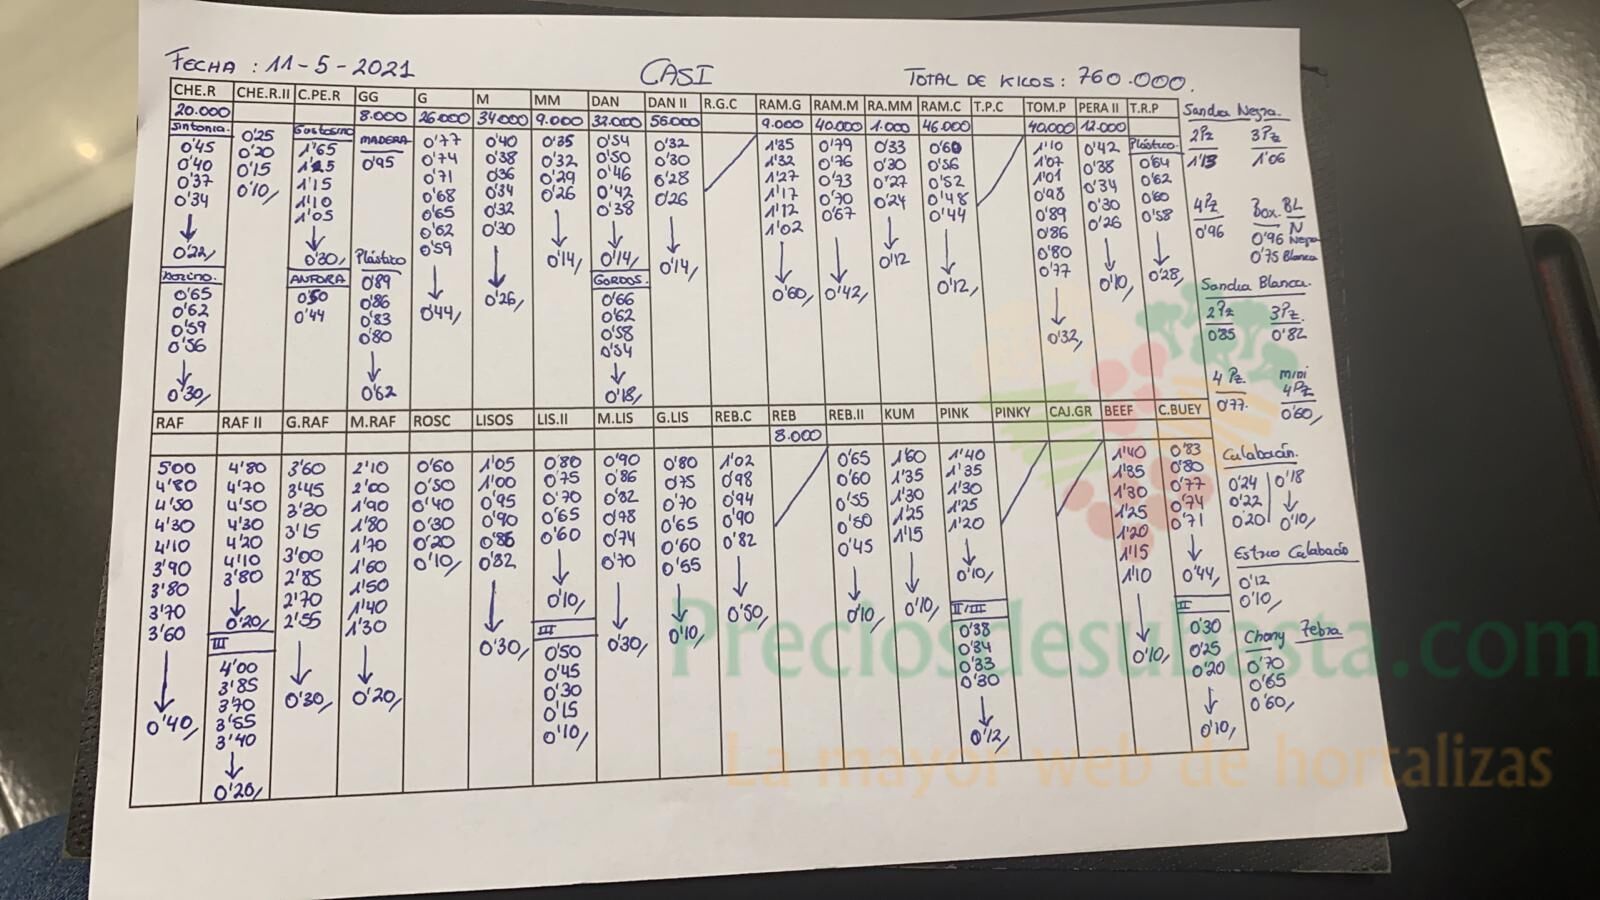 FECHA : 11-5-2021 CASI TOTAL DE KILOS : 760.000.
CHE.R CHE.R.II C.PE.R GG G M MM DAN DAN II R.G.C RAM.G RAM.M RA.MM RAM.C T.P.C TOM.P PERA II T.R.P
20.000 8.000 26.000 34.000 9.000 32.000 56.000 9.000 40.000 1.000 46.000 40.000 12.000
Sintonia.
0'45
0'40
0'37
0'34
0'22,
0'65
0'62
0'59
0'56
0'30,
0'25
0'20
0'15
0'10,
1'65
1'25
1'15
1'10
1'05
0'30,
ANFORA
0'50
0'44
MADERA
0'95
Plástico
0'89
0'86
0'83
0'80
0'62
0'77
0'74
0'71
0'68
0'65
0'62
0'59
0'44,
0'40
0'38
0'36
0'34
0'32
0'30
0'26,
0'35
0'32
0'29
0'26
0'14,
0'54
0'50
0'46
0'42
0'38
0'14,
GORDOS.
0'66
0'62
0'58
0'54
0'18,
0'32
0'30
0'28
0'26
0'14,
1'35
1'32
1'27
1'17
1'12
1'02
0'60,
0'79
0'76
0'73
0'70
0'67
0'42,
0'33
0'30
0'27
0'24
0'12
0'60
0'56
0'52
0'48
0'44
0'12,
1'10
1'07
1'01
0'98
0'89
0'86
0'80
0'77
0'32,
0'42
0'38
0'34
0'30
0'26
0'10,
Plástico.
0'64
0'62
0'60
0'58
0'28,
Sandia Negra.
2Pz 3Pz
1'13 1'06
4Pz Box. BL
N
0'96 0'96 Negra
0'75 Blanca
Sandia Blanca.
2Pz 3Pz.
0'85 0'82
4 Pz. mini
4Pz
0'77. 0'60,
RAF RAF II G.RAF M.RAF ROSC LISOS LIS.II M.LIS G.LIS REB.C REB REB.II KUM PINK PINKY CAJ.GR BEEF C.BUEY
8.000
500
4'80
4'50
4'30
4'10
3'90
3'80
3'70
3'60
0'40,
4'80
4'70
4'50
4'30
4'20
4'10
3'80
0'20,
III
4'00
3'85
3'70
3'55
3'40
0'20,
3'60
3'45
3'30
3'15
3'00
2'85
2'70
2'55
0'30,
2'10
2'00
1'90
1'80
1'70
1'60
1'50
1'40
1'30
0'20,
0'60
0'50
0'40
0'30
0'20
0'10,
1'05
1'00
0'95
0'90
0'86
0'82
0'30,
0'80
0'75
0'70
0'65
0'60
0'10,
III
0'50
0'45
0'30
0'15
0'10,
0'90
0'86
0'82
0'78
0'74
0'70
0'30,
0'80
0'75
0'70
0'65
0'60
0'55
0'10,
1'02
0'98
0'94
0'90
0'82
0'50,
0'65
0'60
0'55
0'50
0'45
0'10,
1'60
1'35
1'30
1'25
1'15
0'10,
1'40
1'35
1'30
1'25
1'20
0'10,
II/III
0'38
0'34
0'33
0'30
0'12,
1'40
1'35
1'30
1'25
1'20
1'15
1'10
0'10,
0'83
0'80
0'77
0'74
0'71
0'44,
II
0'30
0'25
0'20
0'10,
Calabacín.
0'24 0'18
0'22
0'20 0'10,
0'12
0'10,
0'70
0'65
0'60,
Preciosdesubasta.com
La mayor web de hortalizas